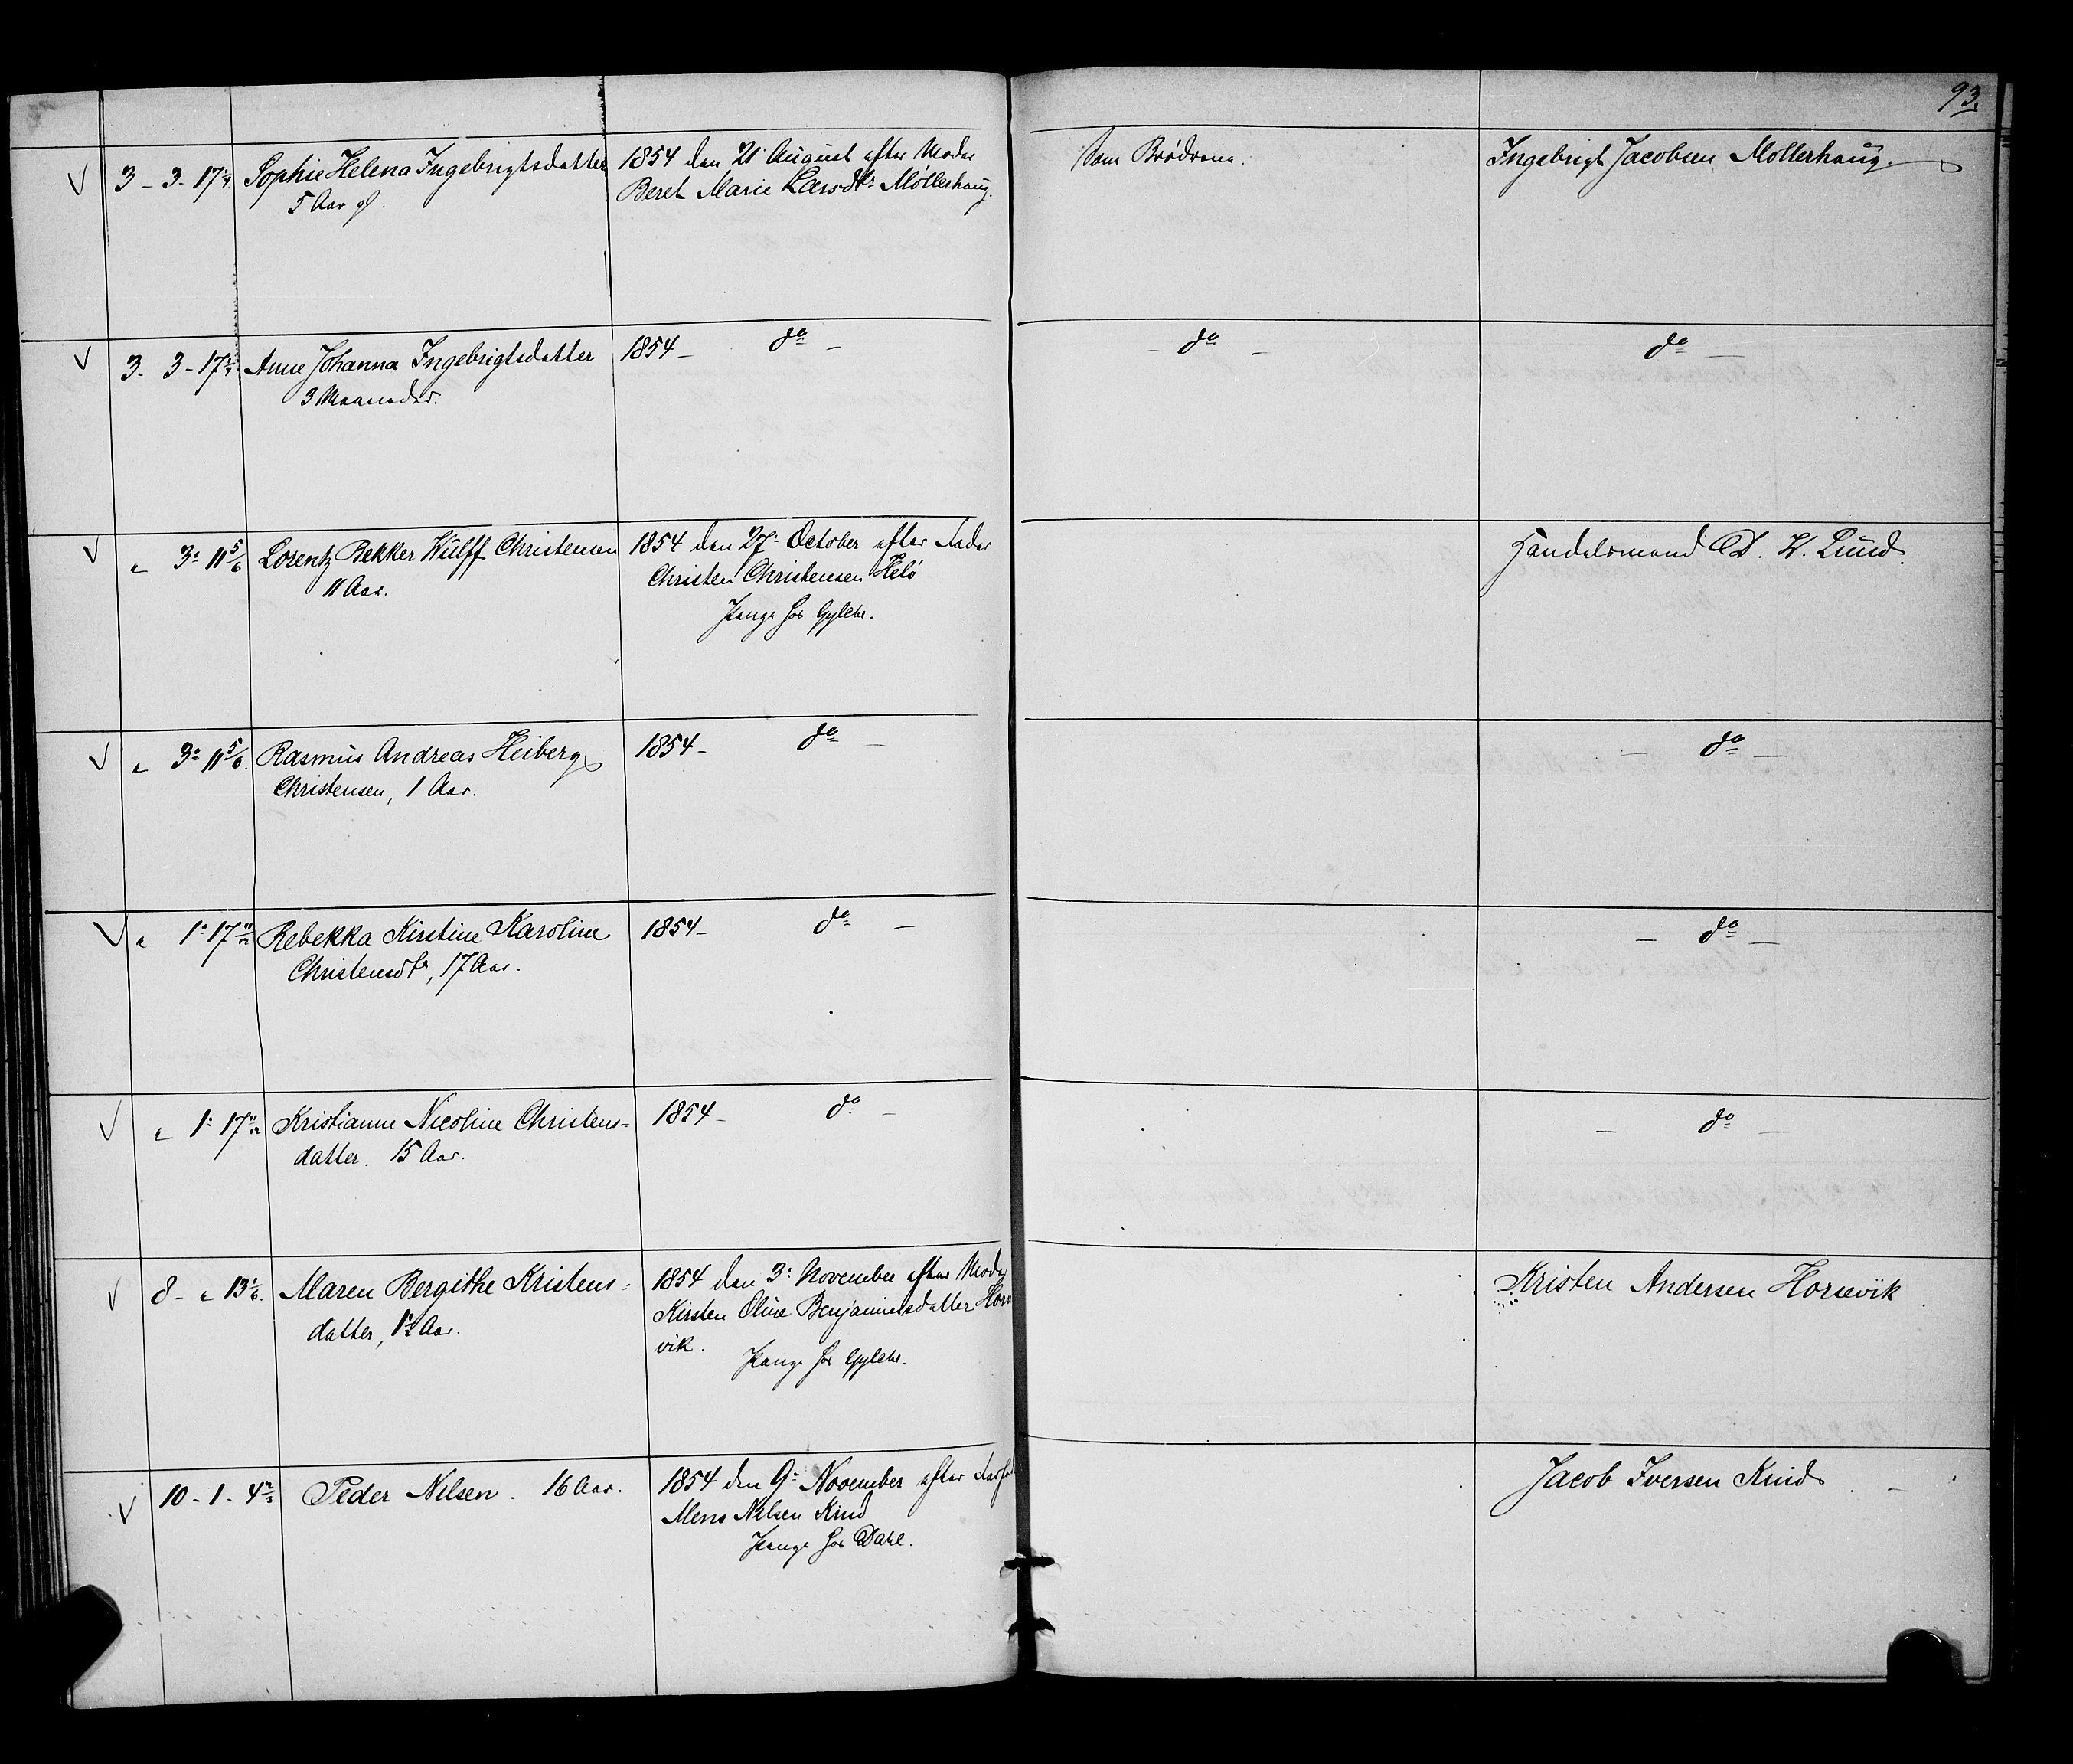 93.
3 - 3 - 17 1/4 Sophie Helena Ingebrigtsdatter 1854 den 21 August efter Moder Som Brødrene. Ingebrigt Jacobsen Møllerhaug.
5 Aar gl. Beret Marie Larsdtr Møllerhaug.
3 - 3 - 17 1/4 Anne Johanna Ingebrigtsdatter 1854 - do - - do - do -
3 Maaneder.
" 3 - 11 5/6 Lorentz Bekker Wulff Christensen 1854 den 27 October efter Fader Handelsmand W. Lund.
11 Aar. Christen Christensen Helø
Penge hos Gylche.
" 3 - 11 5/6 Rasmus Andreas Heiberg 1854 - do - - do -
Christensen, 1 Aar.
" 1 - 17 11/12 Rebekka Kirstine Karoline 1854 - do - - do -
Christensdtr, 17 Aar.
" 1 - 17 11/12 Kristianne Nicoline Christens= 1854 - do - - do -
datter. 15 Aar.
8 - " 13 1/6 Maren Bergithe Kristens= 1854 den 3 November efter Moder Kristen Andersen Horsevik
datter, 1 1/2 Aar. Kirsten Oline Benjaminsdatter Horse
vik.
Penge hos Gylche.
10 - 1 - 4 2/3 Peder Nilsen. 16 Aar. 1854 den 9 November efter Jacob Iversen Kind
Mons Nilsen Kind
Penge hos Dahl.